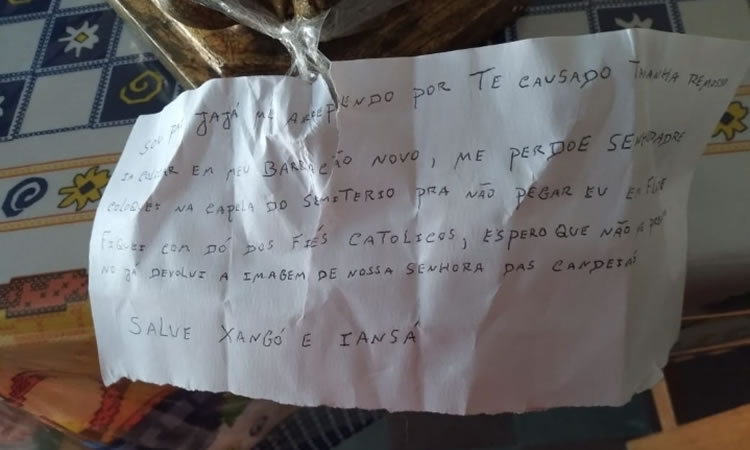 SOU PAI JAJÁ ME ARREPENDO POR TE CAUSADO TMANHA REMOSO
IA COLOCAR EM MEU BARRACÃO NOVO, ME PERDOE SENHOR PADRE
COLOQUEI NA CAPELA DO SEMITERIO PRA NÃO PEGAR EU EM
FIQUEI COM DÓ DOS FIÉS CATOLICOS, ESPERO QUE NÃO A
JÁ DEVOLVI A IMAGEM DE NOSSA SENHORA DAS CANDEIAS
SALVE XANGÓ E IANSÃ